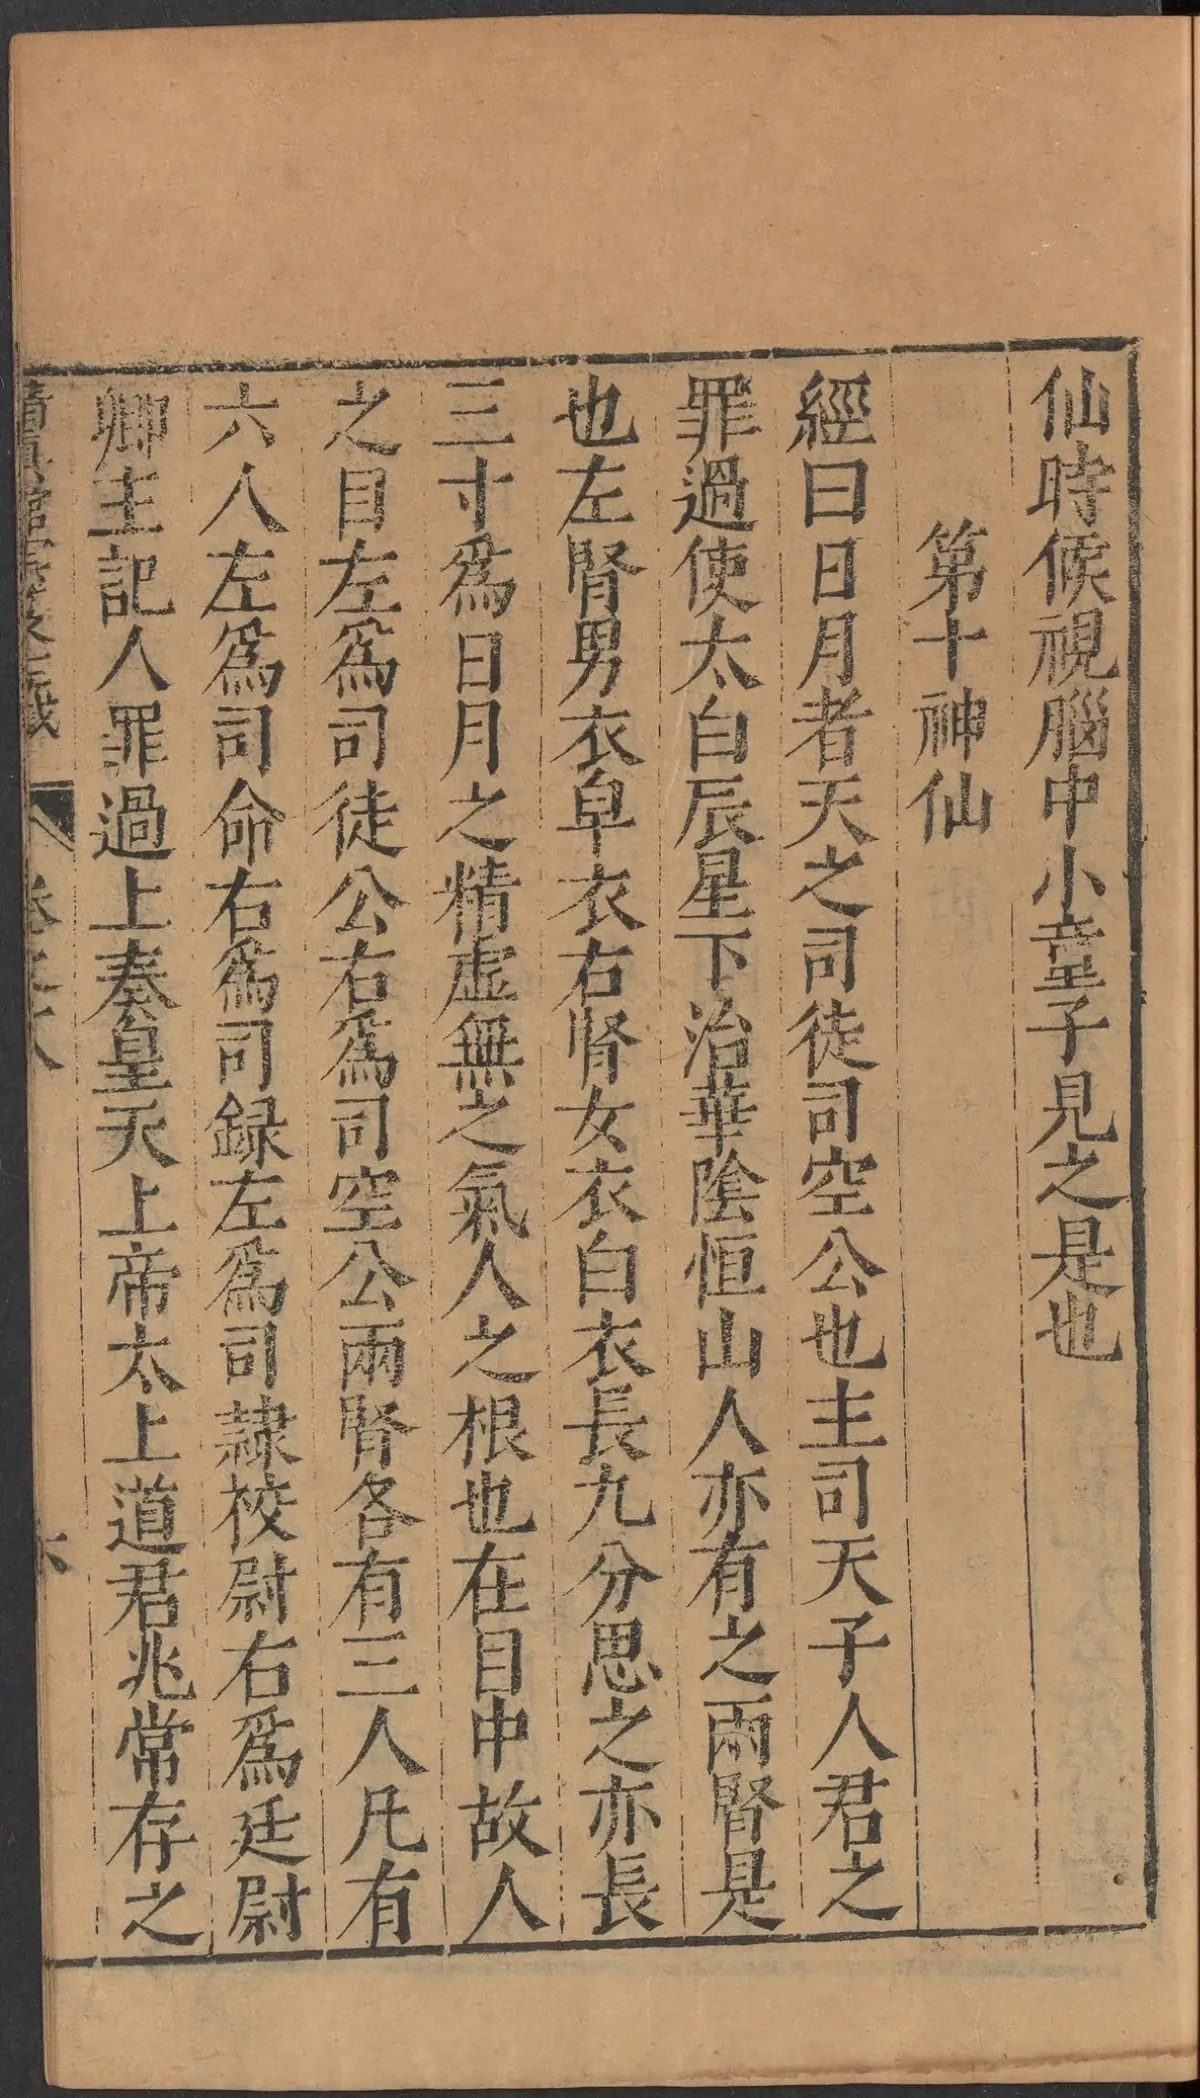 仙時候視腦中小童子見之是也
第十神仙
經曰日月者天之司徒司空公也主司天子人君之
罪過使太白辰星下治華陰恒山人亦有之兩腎是
也左腎男衣皁衣右腎女衣白衣長九分思之亦長
三寸爲日月之精虛無之氣人之根也在目中故人
之目左爲司徒公右爲司空公兩腎各有三人凡有
六人左爲司命右爲司録左爲司隷校尉右爲廷尉
卿主記人罪過上奏皇天上帝太上道君兆常存之